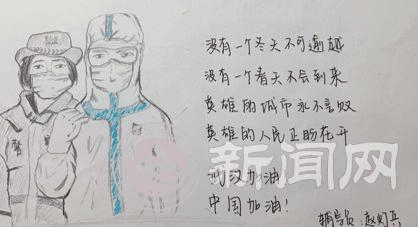 没有一个冬天不可逾越
没有一个春天不会到来
英雄的城市永不言败
英雄的人民正盼花开
武汉加油
中国加油!
新闻网
辅导员:赵